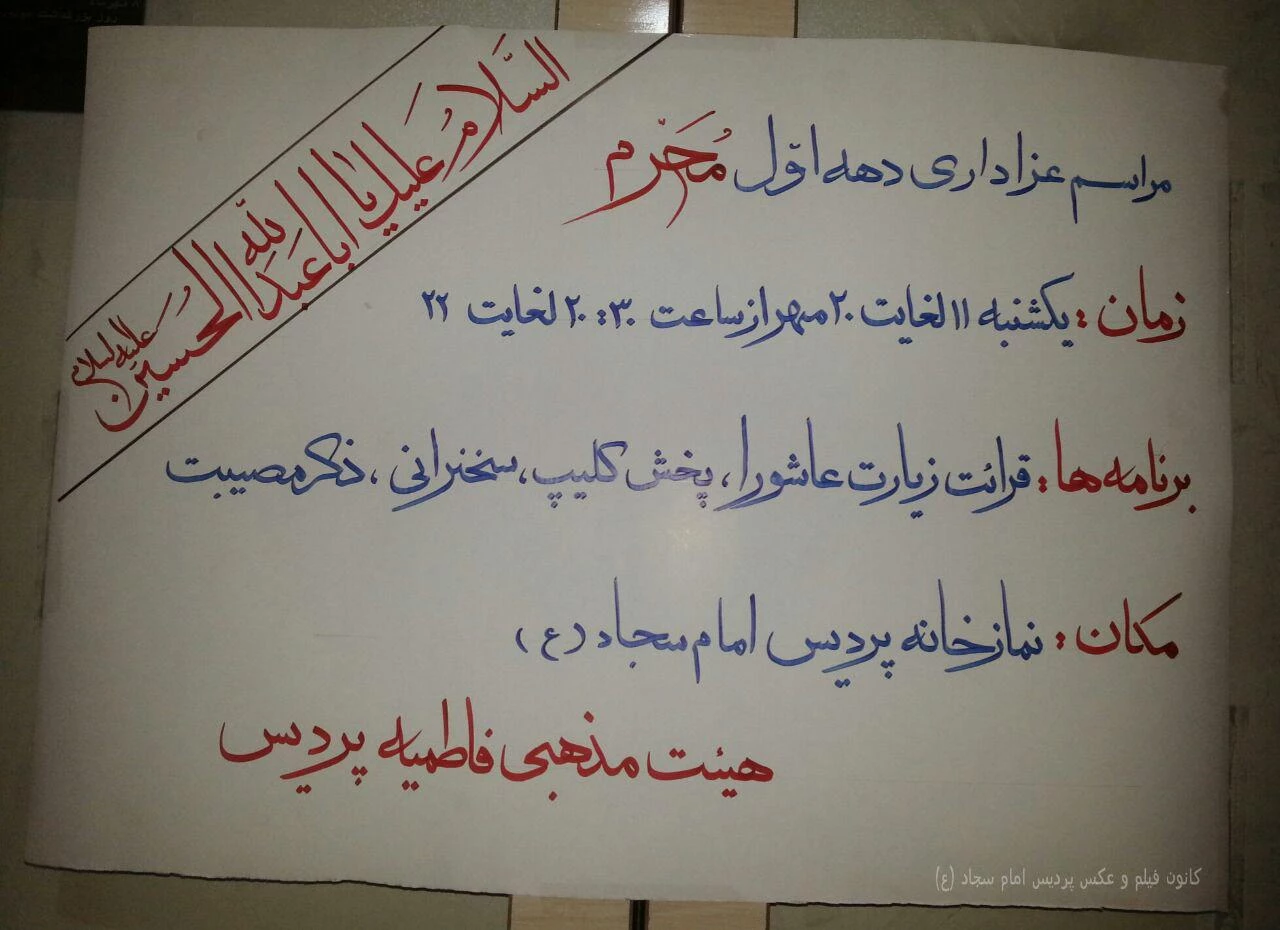 السَّلامُ عَلیک یا اباعَبدالله الحُسَین علیه السلام
مراسم عزاداری دهه اوّل مُحَرّم
زمان : یکشنبه ۱۱ لغایت ۲۰ مهر از ساعت ۲۰:۳۰ لغایت ۲۲
برنامه ها : قرائت زیارت عاشورا ، پخش کلیپ ، سخنرانی ، ذکر مصیبت
مکان : نمازخانه پردیس امام سجاد (ع)
هیئت مذهبی فاطمیه پردیس
کانون فیلم و عکس پردیس امام سجاد (ع)